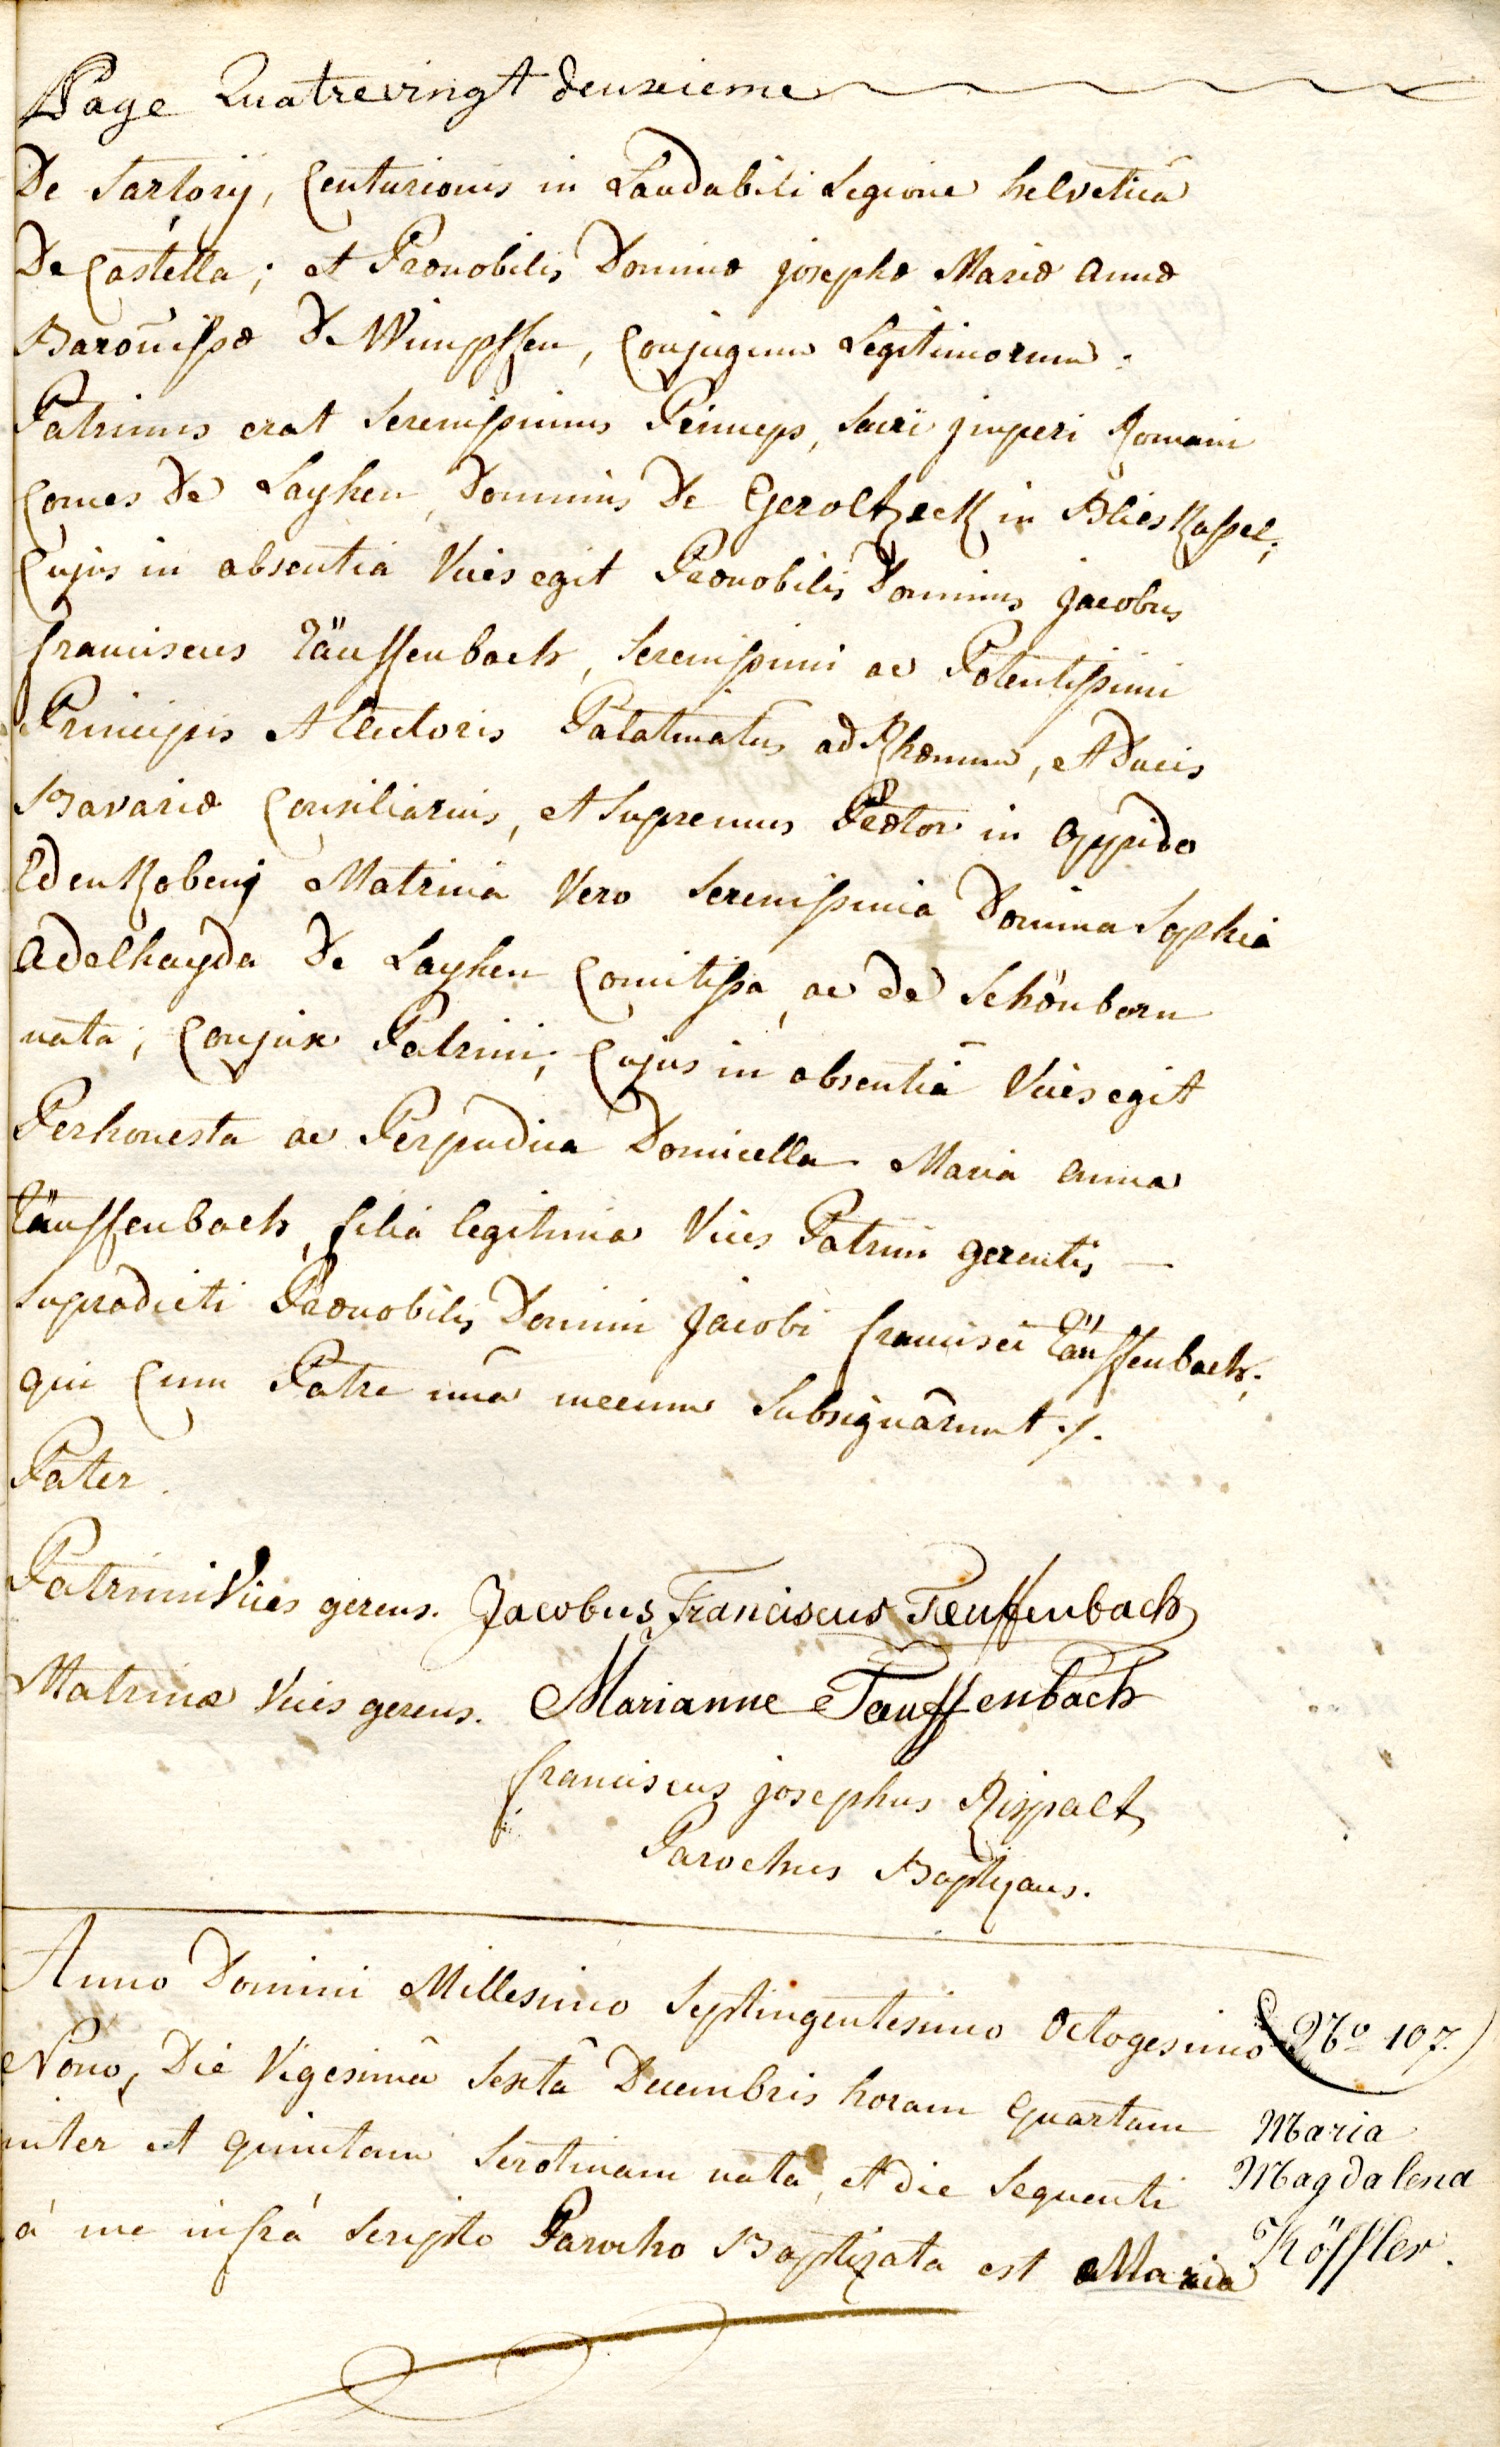 Page Quatrevingt deuxieme
De Sartorÿ, Centurionis in Laudabili Legione helveticâ
De Castella; et Prænobilis Dominæ josephæ Mariæ annæ
Baroñissæ De Wimpffen, Conjugum Legitimorum:
Patrinus erat Serenissimus Princeps, Sacri jmperi Romani
Comes De Layhen, Dominus De Geroltzeck in Blieskassel;
Cujus in absentia Vices egit Prænobilis Dominus jacobus
franciscus Täuffenbach, Serenissimi ac Potentissimi
Principis Electoris Palatinatus ad Rhænum, et Ducis
Bavariæ Consiliarius, et Supremus in oppido
Edenkobenj Matrina Vero Serenissima Domina Sophia
adelhayda De Layhen Comitissa, ac de Schönborn
nata; Conjux Patrini; Cujus in absentiâ Vices egit
Perhonesta ac Perpudica Domicella Maria anna
Täuffenbach, filia legitima Vices Patrini gerentis —
Supradicti Prænobilis Domini jacobi francisci Täuffenbach;
qui Cum Patre unâ mecum Subsignârunt ./.
Pater.
Patrini Vices gerens. Jacobus Franciscus Tæuffenbach
Matrinæ Vices gerens. Marianne Tauffenbach
franciscus josephus Rispalt
Parochus Baptizans.
Anno Domini Millesimo Septingentesimo Octogesimo
Nono, Die Vigesimâ Sextâ Decembris horam Quartam
inter et quintam Serotinam nata, et die Sequenti
á me infrá Scripto Parocho Baptizata est Maria
No 107.
Maria
Magdalena
Köffler.